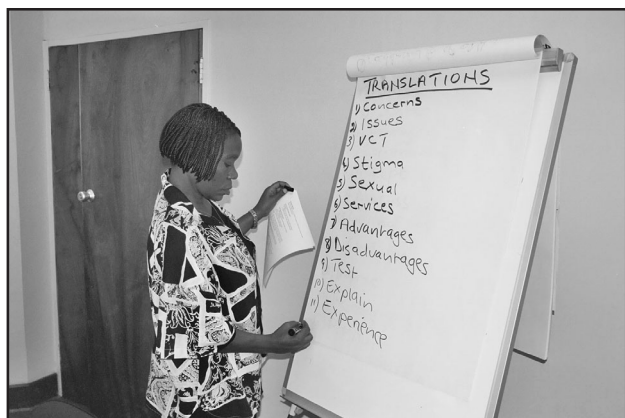 TRANSLATIONS
1) Concerns
2) Issues
3) VCT
4) Stigma
5) Sexual
6) Services
7) Advantages
8) Disadvantages
9) Test
10) Explain
11) Experience